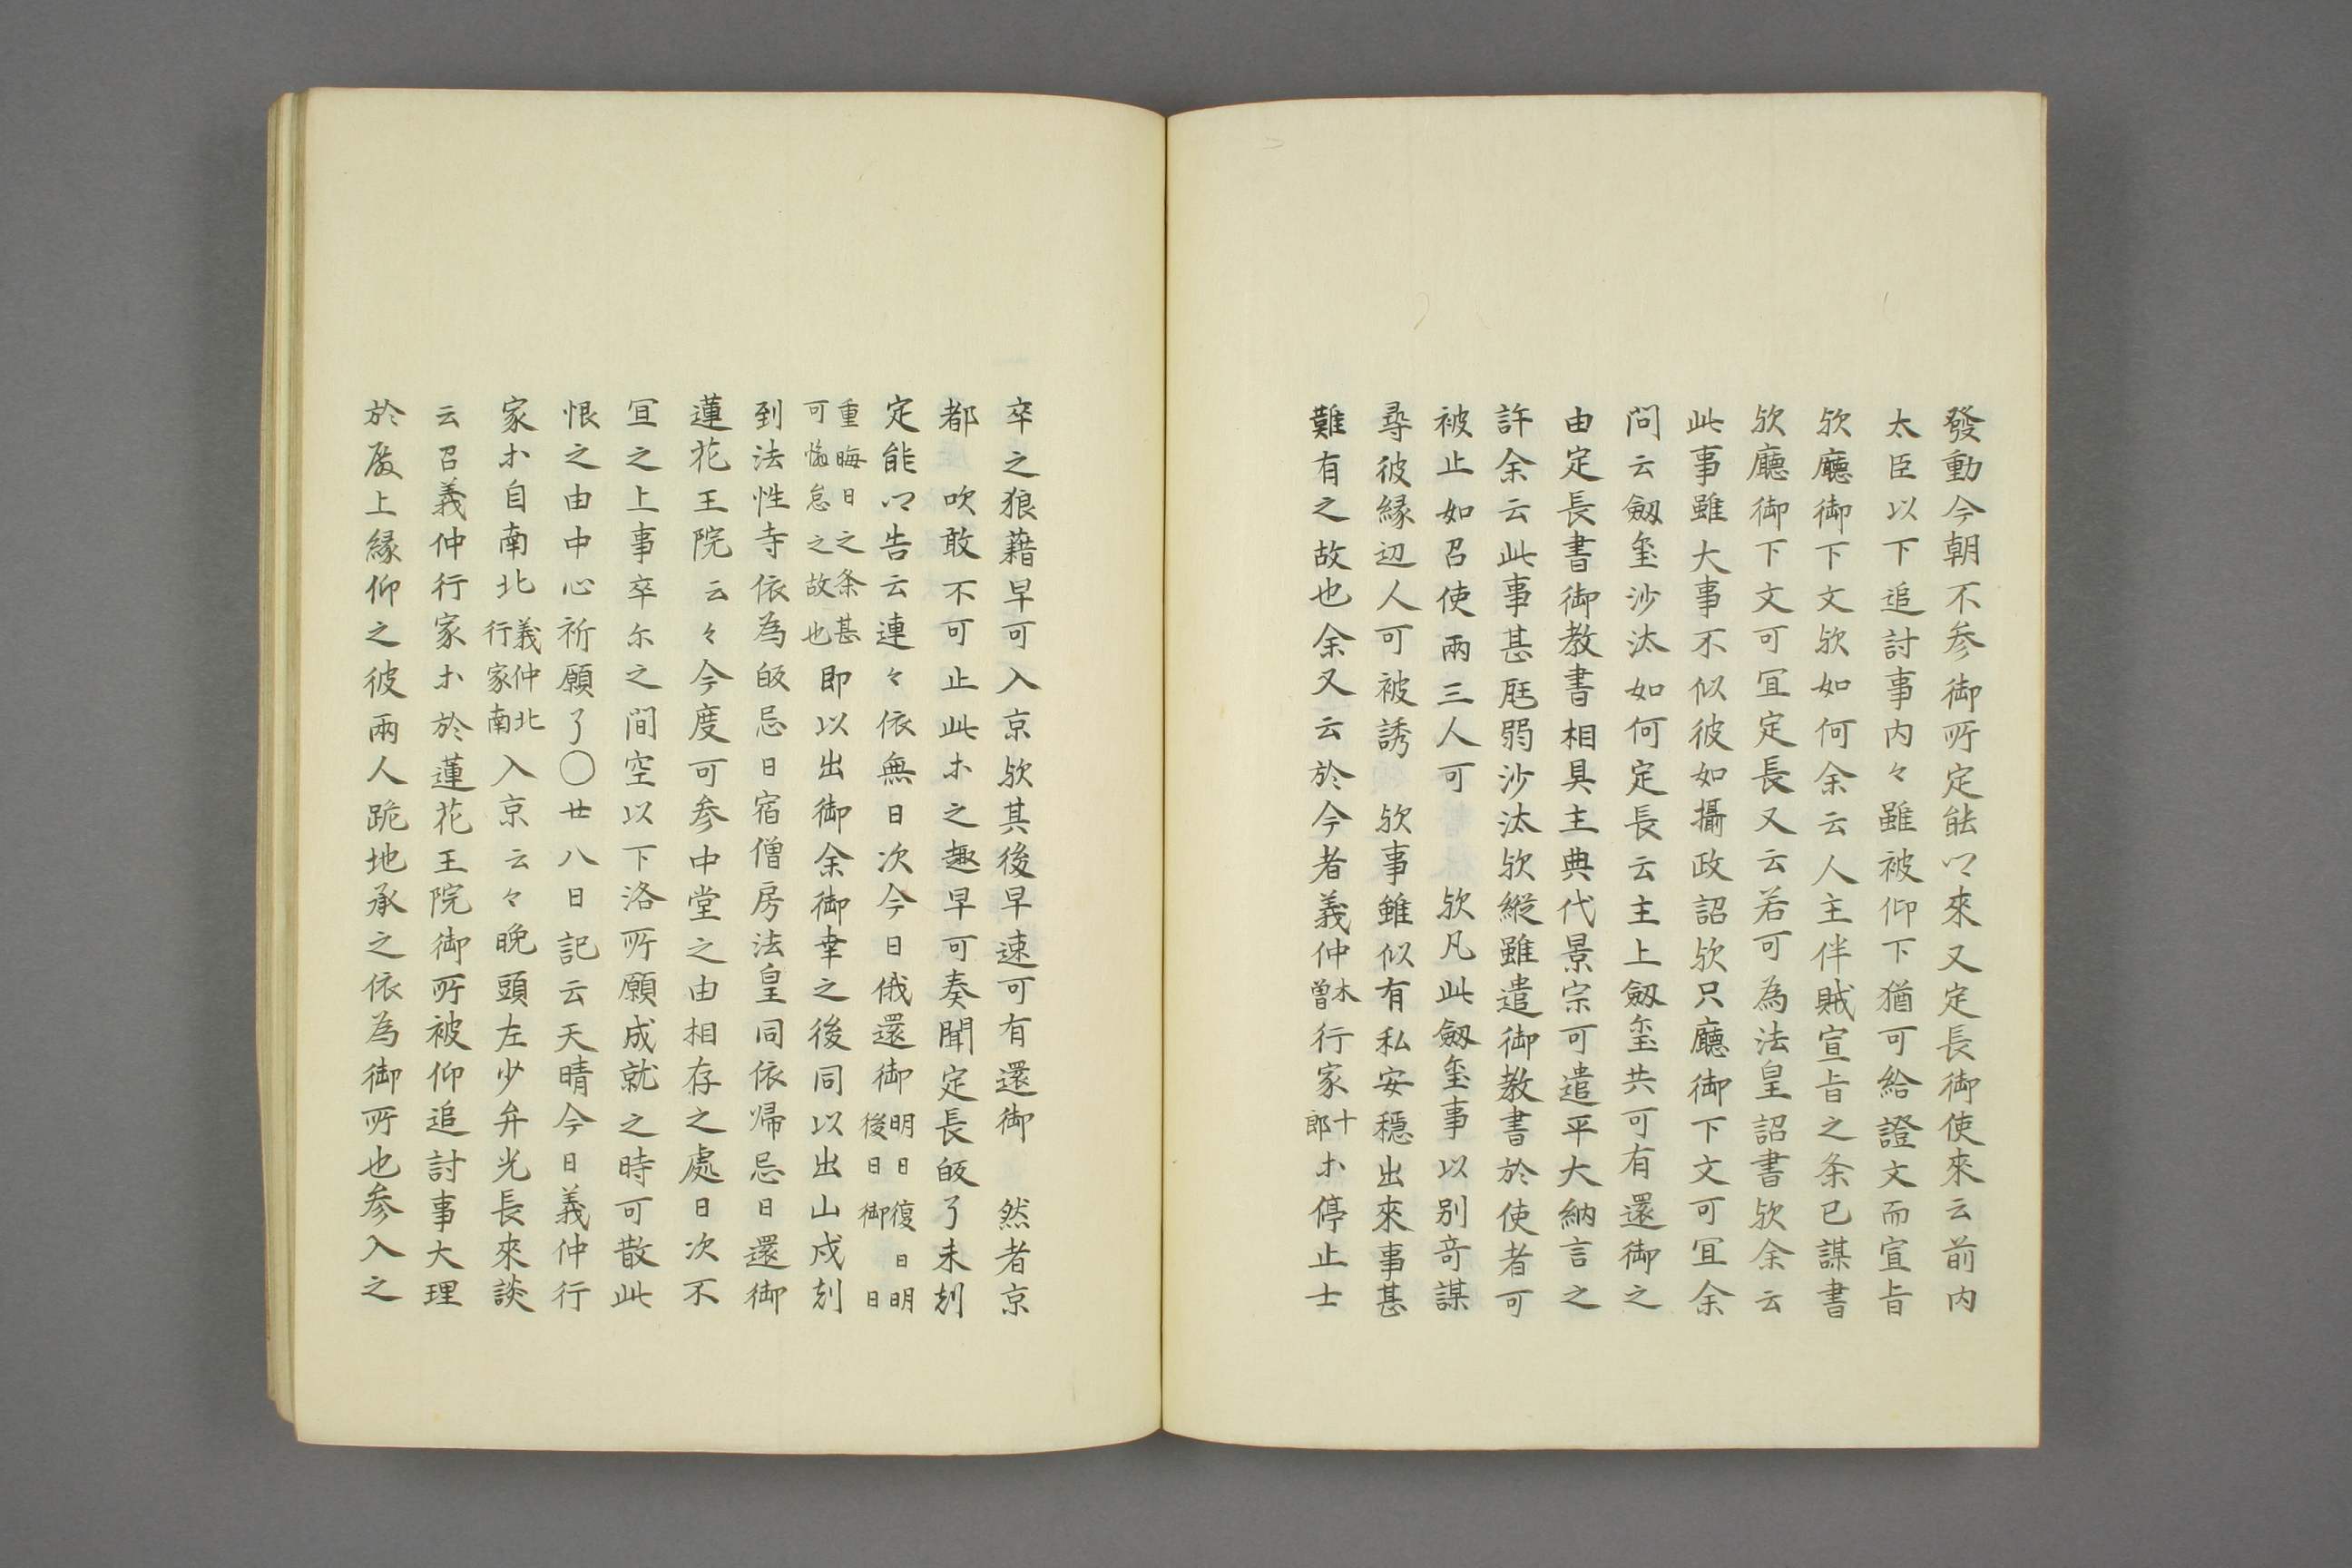 發動今朝不参御所定能卿來又定長御使來云前内
太臣以下追討事内々雖被仰下猶可給證文而宣旨
欤廳御下文欤如何余云人主伴賊宣旨之条已謀書
欤廳御下文可冝定長又云若可為法皇詔書欤余云
此事雖大事不似彼如攝政詔欤只廳御下文可冝余
問云劔璽沙汰如何定長云主上劔璽共可有還御之
由定長書御教書相具主典代景宗可遣平大納言之
許余云此事甚尫弱沙汰欤縱雖遣御教書於使者可
被止如召使兩三人可　欤凡此劔璽事以別竒謀
尋彼縁辺人可被誘　欤事雖似有私安穏出來事甚
難有之故也余又云於今者義仲木曽行家十郎ホ停止士
卒之狼藉早可入京欤其後早速可有還御　然者京
都　吹敢不可止此ホ之趣早可奏聞定長皈了未刻
定能卿告云連々依無日次今日俄還御明日復日明後日御日
重晦日之条甚可懈怠之故也即以出御余御幸之後同以出山戍刻
到法性寺依為皈忌日宿僧房法皇同依帰忌日還御
蓮花王院云々今度可参中堂之由相存之處日次不
冝之上事卒尓之間空以下洛所願成就之時可散此
恨之由中心祈願了〇廿八日記云天晴今日義仲行
家ホ自南北義仲北行家南入京云々晩頭左少弁光長來談
云召義仲行家ホ於蓮花王院御所被仰追討事大理
於殿上縁仰之彼兩人跪地承之依為御所也参入之